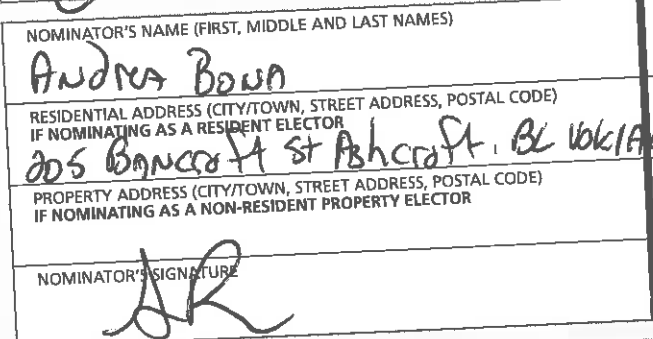 NOMINATOR'S NAME (FIRST, MIDDLE AND LAST NAMES)
Andrea Bona
RESIDENTIAL ADDRESS (CITY/TOWN, STREET ADDRESS, POSTAL CODE)
IF NOMINATING AS A RESIDENT ELECTOR
205 Bancroft St Ashcroft, BC V0K1A
PROPERTY ADDRESS (CITY/TOWN, STREET ADDRESS, POSTAL CODE)
IF NOMINATING AS A NON-RESIDENT PROPERTY ELECTOR
NOMINATOR'S SIGNATURE
AR